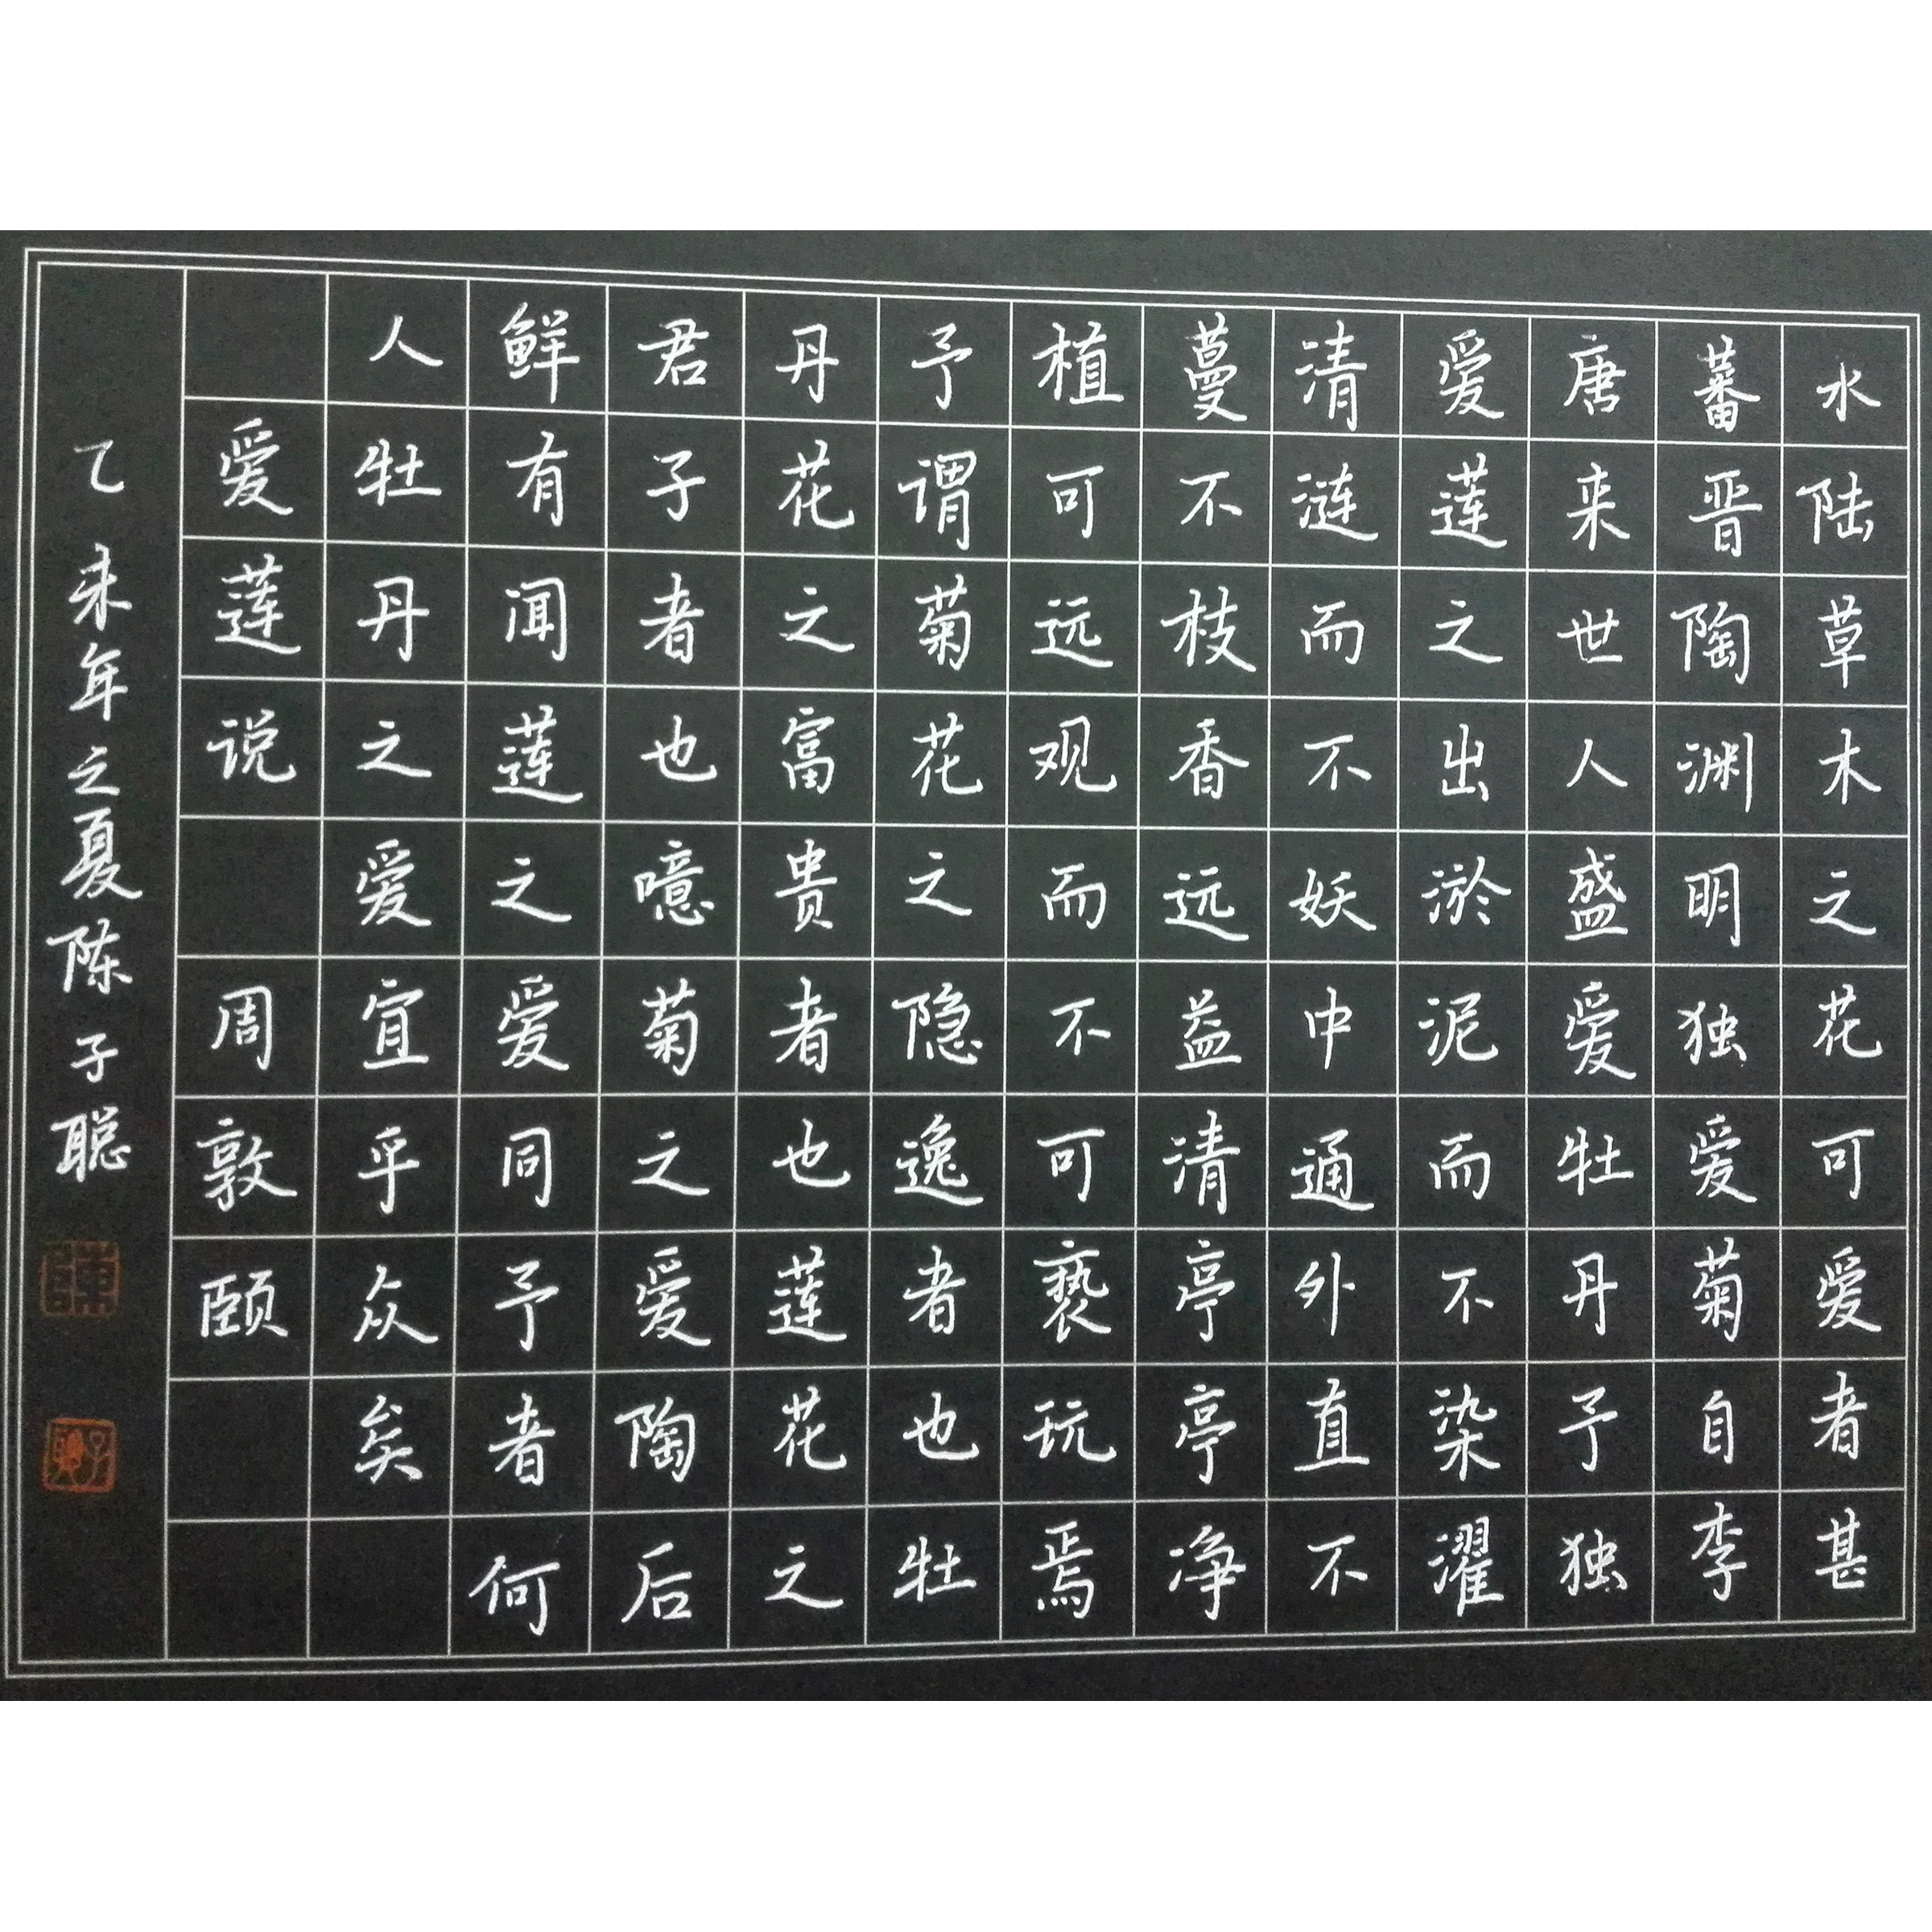 水陆草木之花可爱者甚
蕃晋陶渊明独爱菊自李
唐来世人盛爱牡丹予独
爱莲之出淤泥而不染濯
清涟而不妖中通外直不
蔓不枝香远益清亭亭净
植可远观而不可亵玩焉
予谓菊花之隐逸者也牡
丹花之富贵者也莲花之
君子者也噫菊之爱陶后
鲜有闻莲之爱同予者何
人牡丹之爱宜乎众矣
爱莲说 周敦颐
乙未年之夏陈子聪
陳
子聪